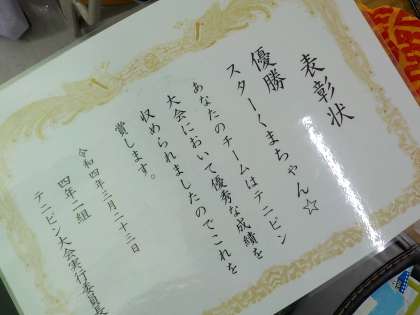 表彰状
優勝
スターくまちゃん☆
あなたのチームはテニピン
大会において優秀な成績を
収められましたのでこれを
賞します。
令和四年二月二十二日
四年二組
テニピン大会実行委員長